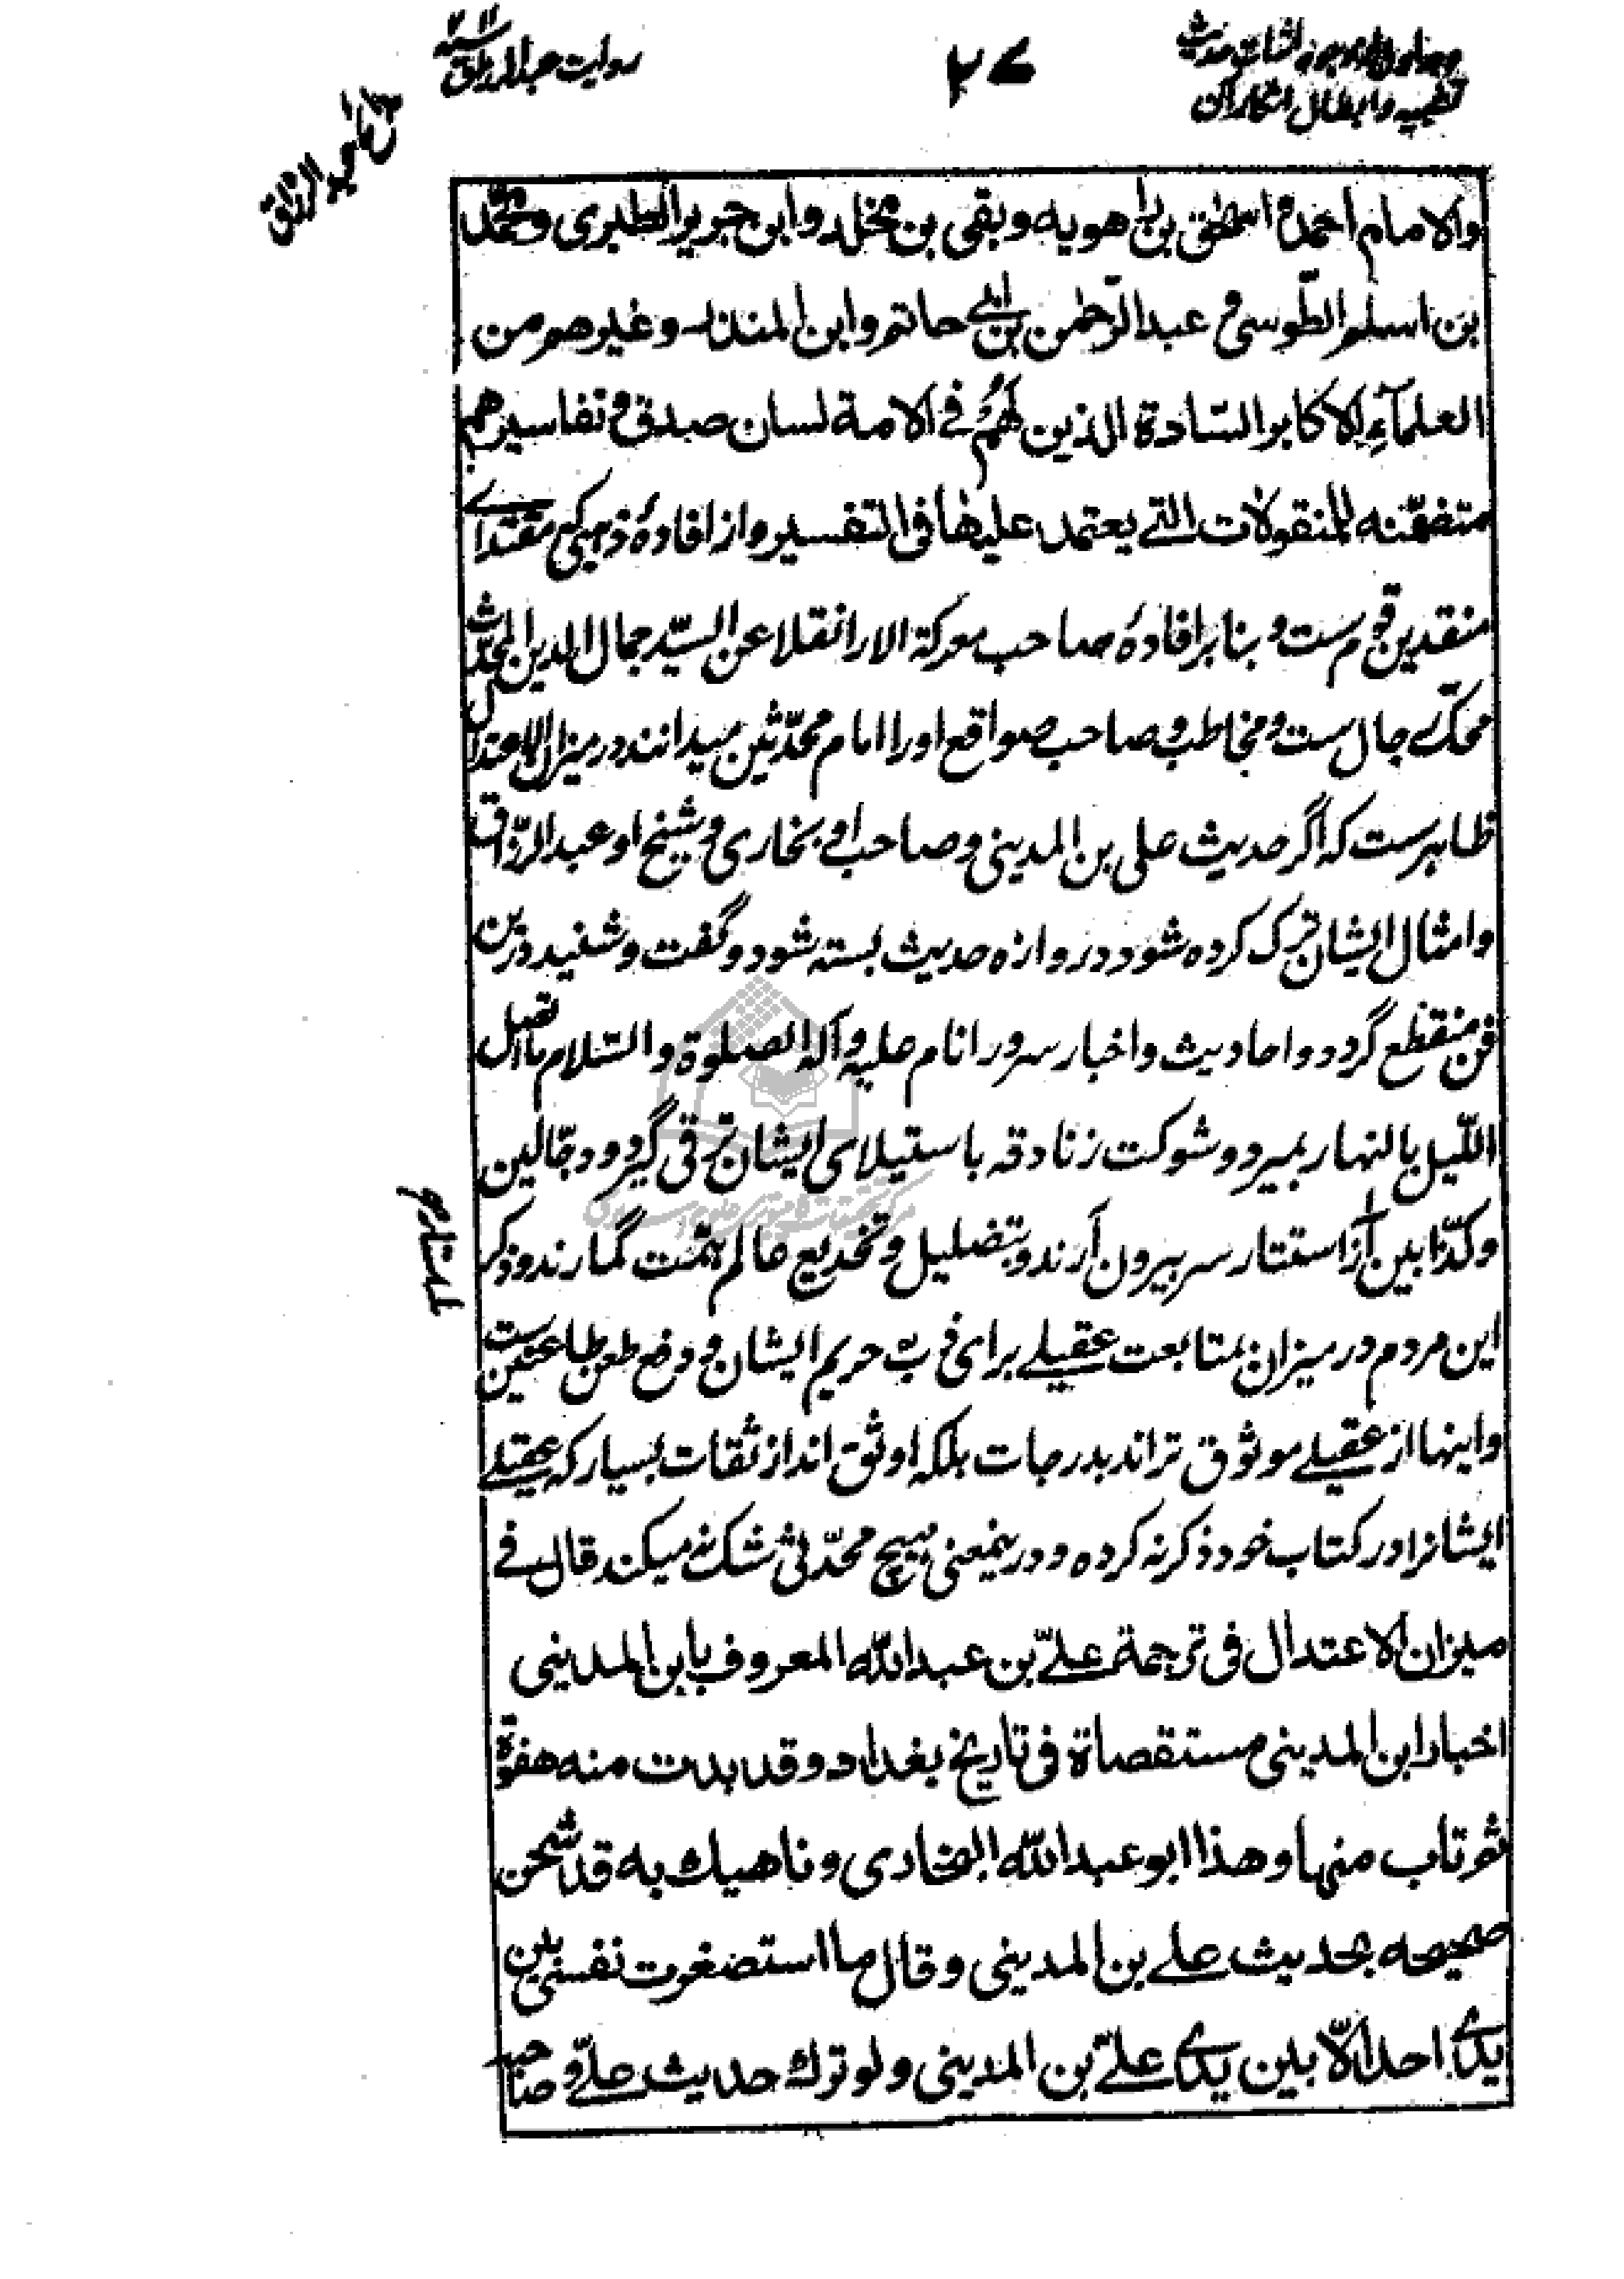 روایت عبدالرزاق
۲۷
قطعیه وابطال انکار آن
عبدالرزاق
والامام احمد و اسحٰق بن راهویه وبقی بن مخلد وابن جریر الطبری ومحمّد
بن اسلم الطّوسی و عبد الرّحمٰن بن ابی حاتم وابن المنذر وغیرهم من
العلمآءِ الاکابر السّادة الذین لَهُمْ فی الامة لسان صدق و تفاسیرهم
متضمّنه للمنقولات التے یعتمد علیها فی التفسیر واز افادهٔ ذهبی که مقتدای
منقدین قوم ست و بنابر افادهٔ صاحب معرکة الارا نقلا عن السیّد جمال الدین المحدّث
محکّ رجال ست و مخاطب و صاحب صواقع اورا امام محدّثین میدانند در میزان الاعتدال
ظاهرست که اگر حدیث علی بن المدینی و صاحب او بخاری و شیخ او عبدالرّزاق
وامثال ایشان ترک کرده شود دروازه حدیث بسته شود و گفت و شنید درین
فن منقطع گردد و احادیث و اخبار سرور انام علیه وآله الصلوة والسّلام ما اتصل
اللّیل بالنهار بمیرد و شوکت زنادقه باستیلای ایشان ترقی گیرد و دجّالین
و کذّابین از استتار سر بیرون آرند و بتضلیل و تخدیع عالم همّت گمارند و ذکر
این مردم در میزان بمتابعت عقیلے برای ذب حریم ایشان و دفع طعن طاعنین ست
واینها از عقیلے موثوق تراند بدرجات بلکه اوثق اند از ثقات بسیار که عقیلے
ایشانرا در کتاب خود ذکر نه کرده و درینمعنی هیچ محدّثی شک نمیکند قال فے
میزان الاعتدال فی ترجمة علیّ بن عبد الله المعروف بابن المدینی
اخبار ابن المدینی مستقصاة فی تاریخ بغداد وقد بدت منه هفوة
ثم تاب منها وهذا ابو عبد الله البخاری وناهیك به قد شحن
صحیحه بحدیث علے بن المدینی وقال ما استصغرت نفسی بین
یدی احد الّا بین یدی علیّ بن المدینی ولو ترك حدیث علیّ و صاحبه